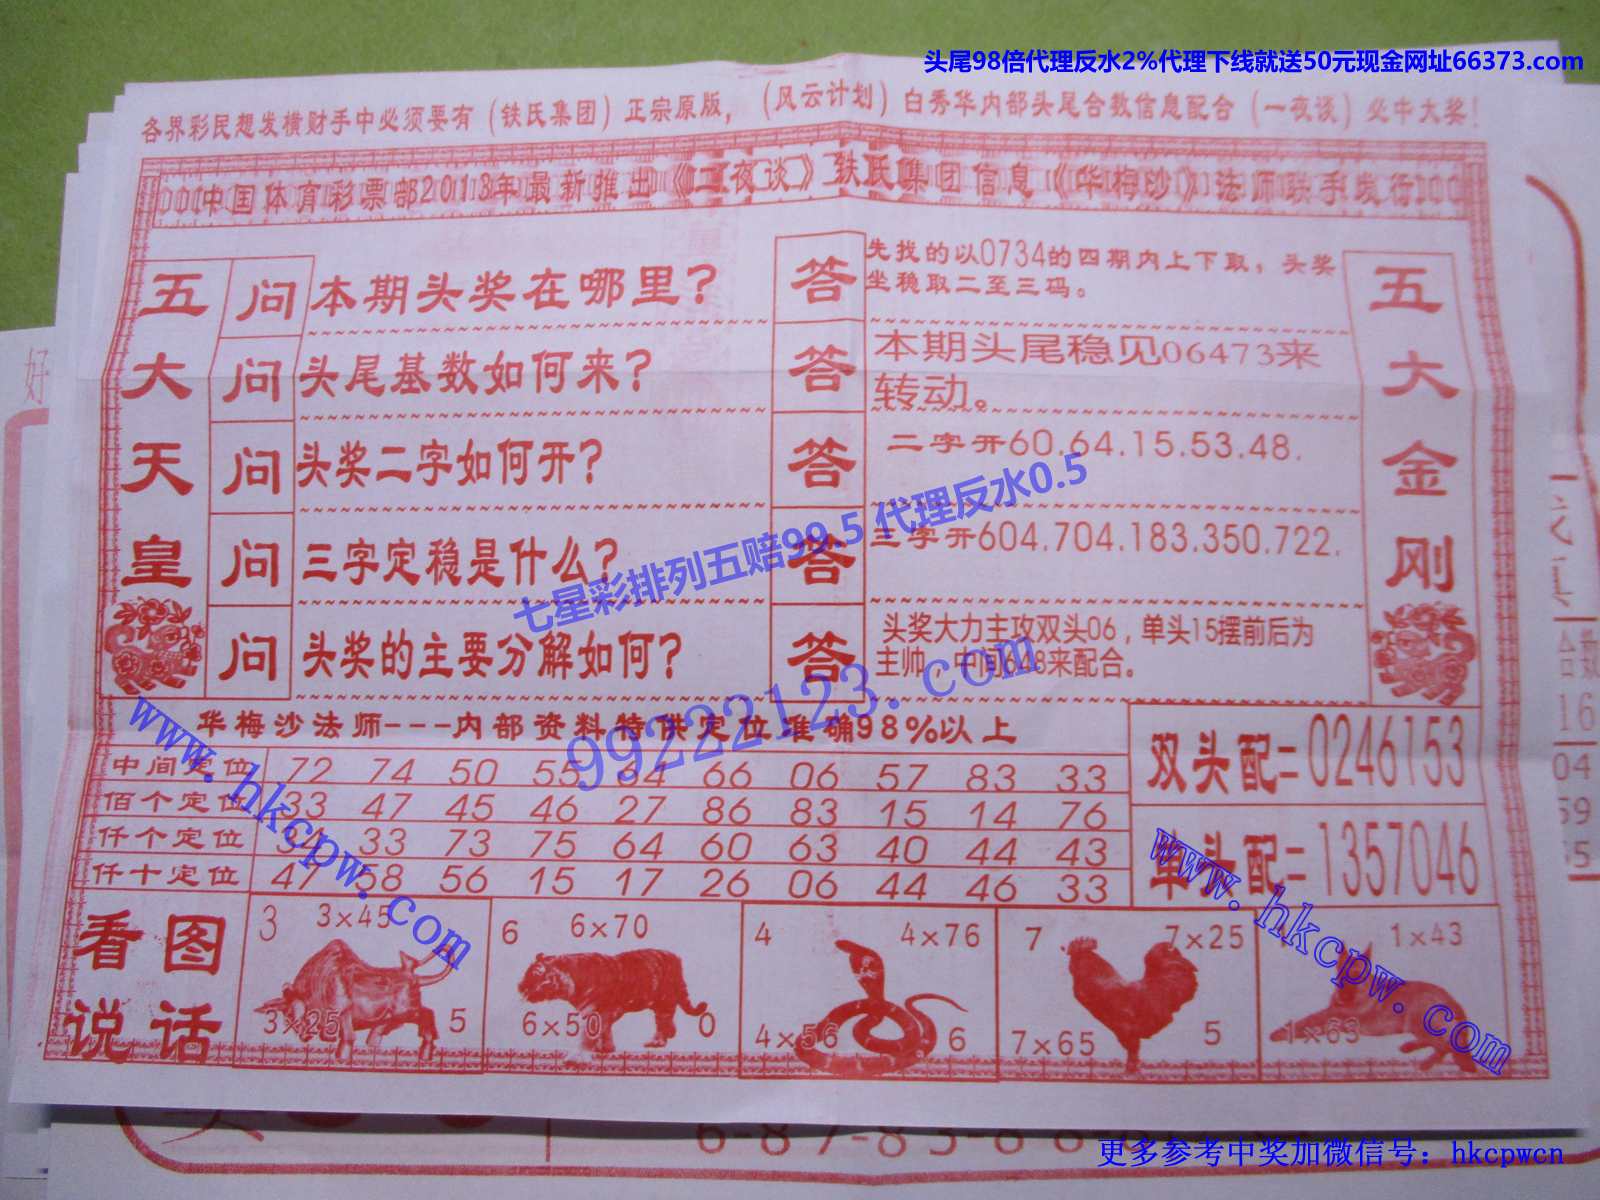 头尾98倍代理反水2%代理下线就送50元现金网址66373.com
各界彩民想发横财手中必须要有（铁氏集团）正宗原版，（风云计划）白秀华内部头尾合数信息配合（一夜谈）必中大奖！
中国体育彩票部2013年最新推出《一夜谈》铁氏集团信息《华梅沙》法师联手发行
五大天皇
问 本期头奖在哪里?
答 先找的以0734的四期内上下取，头奖
坐稳取二至三码。
问 头尾基数如何来?
答 本期头尾稳见06473来
转动。
问 头奖二字如何开?
答 二字开60.64.15.53.48.
问 三字定稳是什么?
答 三字开604.704.183.350.722.
问 头奖的主要分解如何?
答 头奖大力主攻双头06，单头15摆前后为
主帅，中间648来配合。
五大金刚
七星彩排列五赔99.5 代理反水0.5
99222123.com
www.hkcpw.com
华梅沙法师---内部资料特供定位准确98%以上
中间定位 72 74 50 55 64 66 06 57 83 33
佰个定位 33 47 45 46 27 86 83 15 14 76
仟个定位 34 33 73 75 64 60 63 40 44 43
仟十定位 47 58 56 15 17 26 06 44 46 33
双头配二 0246153
单头配二 1357046
www.hkcpw.com
看图
说话
3 3×45
3×25 5
6 6×70
6×50 0
4 4×76
4×56 6
7 7×25
7×65 5
1×43
1×63
好
合数
16
04
59
6-87-83-8
更多参考中奖加微信号：hkcpwcn